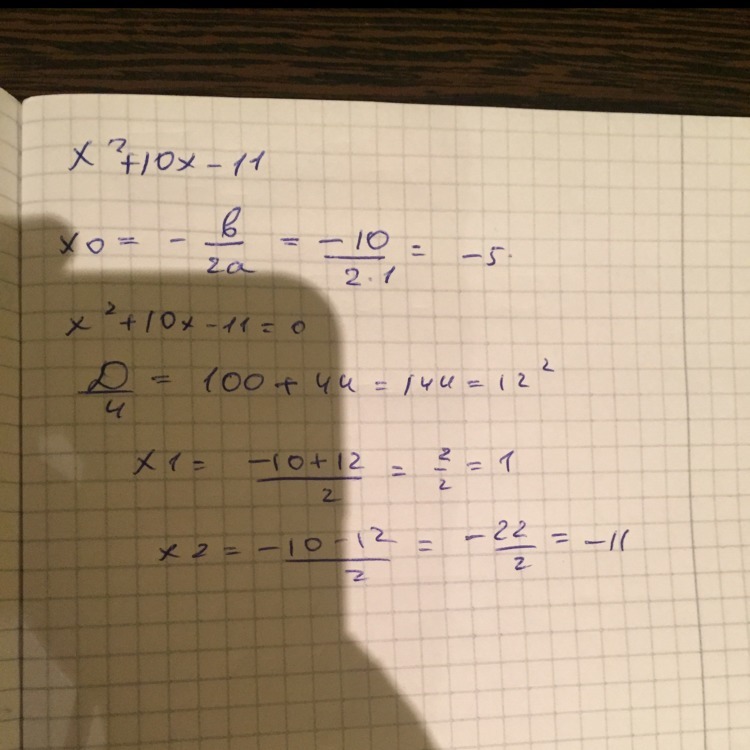 x²+10x-11
x0 = - b/2a = -10/2·1 = -5.
x²+10x-11=0
D/4 = 100+44=144=12²
x1= -10+12/2 = 2/2 = 1
x2 = -10-12/2 = -22/2 = -11